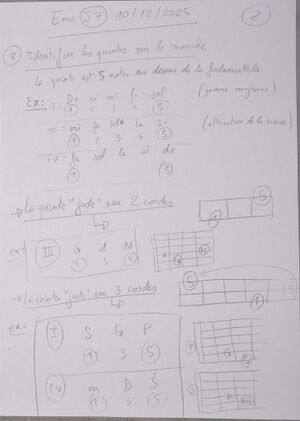 Ema J7 10/12/2025
②
② Identifier les quintes sur le manche
La quinte est 5 notes au dessus de la fondamentale
Ex: I = Do ré mi fa sol (gamme majeure)
① 2 3 4 ⑤
III = mi fa sol# la si
① 2 3 4 ⑤
iv = fa sol la si do
① ⑤
→ La quinte "juste" sur 2 cordes
5
1
ex: III G d N
① 3 ⑤
→ La quinte "juste" sur 3 cordes
5
1
ex:
I S G P
① 3 ⑤
iv m D S
① 3 ⑤